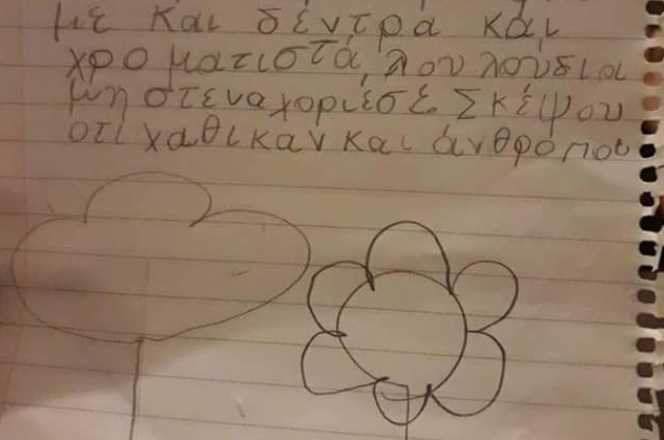 με και δέντρα και
χρο ματιστά, λου λούδια
μη στενα χοριέσε Σκέψου
οτι χαθικαν και άνθροποι